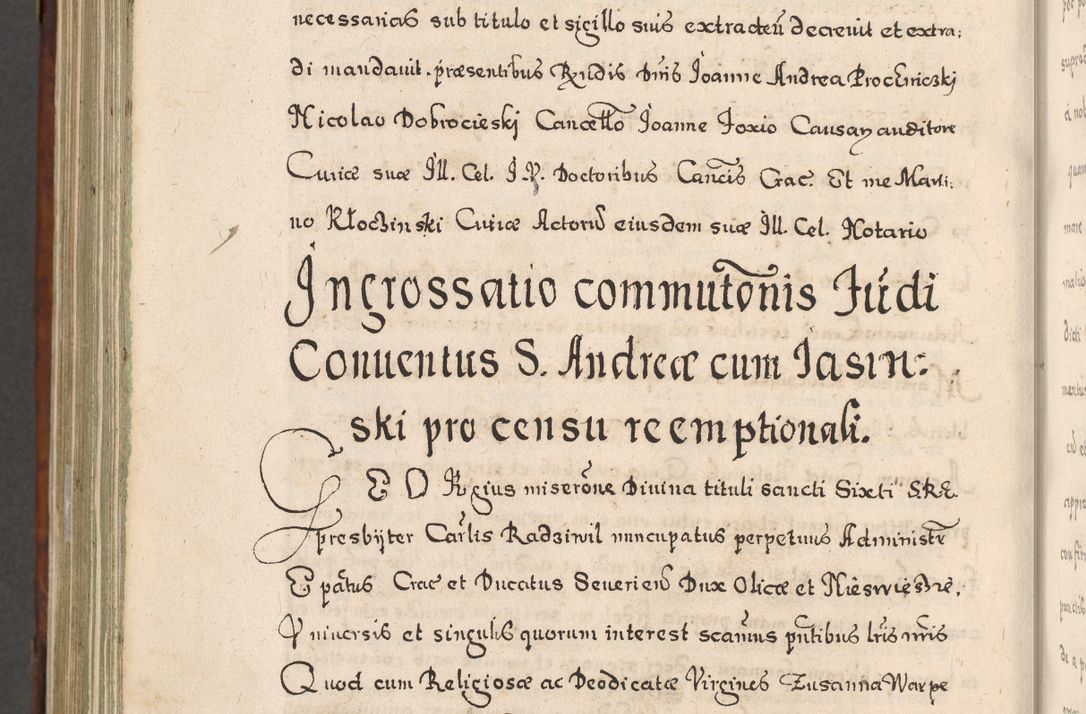 necessarias sub titulo et sigillo suis extracteũ decrevit et extra:
di mandavit. præsentibus Rñdis Dñis Joanne Andrea Procħniczkj
Nicolao Dobrocieskj Cancełło Joanne Foxio Causaƶ auditore
Curiæ suæ Ill. Cel. J. V. Doctoribus Canc̃is Crac. Et me Marti:
no Kłoczinski Curiæ Actorũ eiusdem suæ Ill. Cel. Notario
Ingrossatio commutõnis Fũdi
Conventus S. Andreæ cum Jasin:
ski pro censu reemptionali.
G E O Rgius miserõne Divina tituli sancti Sixti S.R.E.
presbyter Car̃lis Radziwil nuncupatus perpetuus Administr̃
E pãtus Crac et Ducatus Severieñ Dux Olicæ et Nieswieszie,
Universis et singulis quorum interest scam̃us pñtibus lr̃is nr̃is
Quod cum Religiosæ ac Deodicatæ Virgines Zusanna Warpe